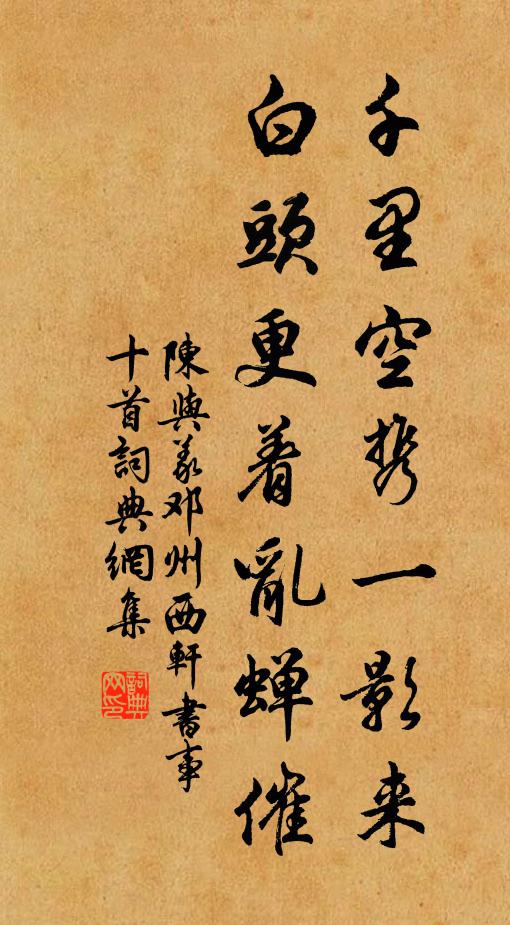 千里空携一影来
白頭更着亂蝉催
陳與義邓州西軒書事
十首詞典網集
詞典网印